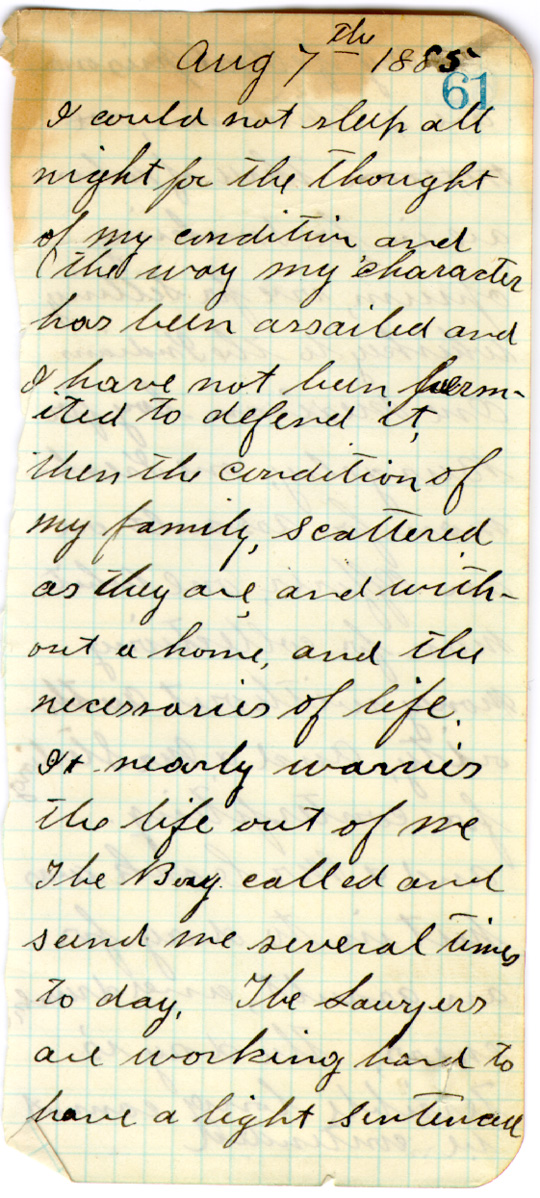 Aug 7th 1885
61
I could not sleep all
night for the thought
of my condition and
(the way my character
has been assailed and
I have not been perm-
ited to defend it,
then the condition of
my family, scattered
as they are, and with-
out a home, and the
necessaries of life.
It nearly worries
the life out of me
The Boy called and
seend me several times
to day. The Lawyers
are working hard to
have a light sentence